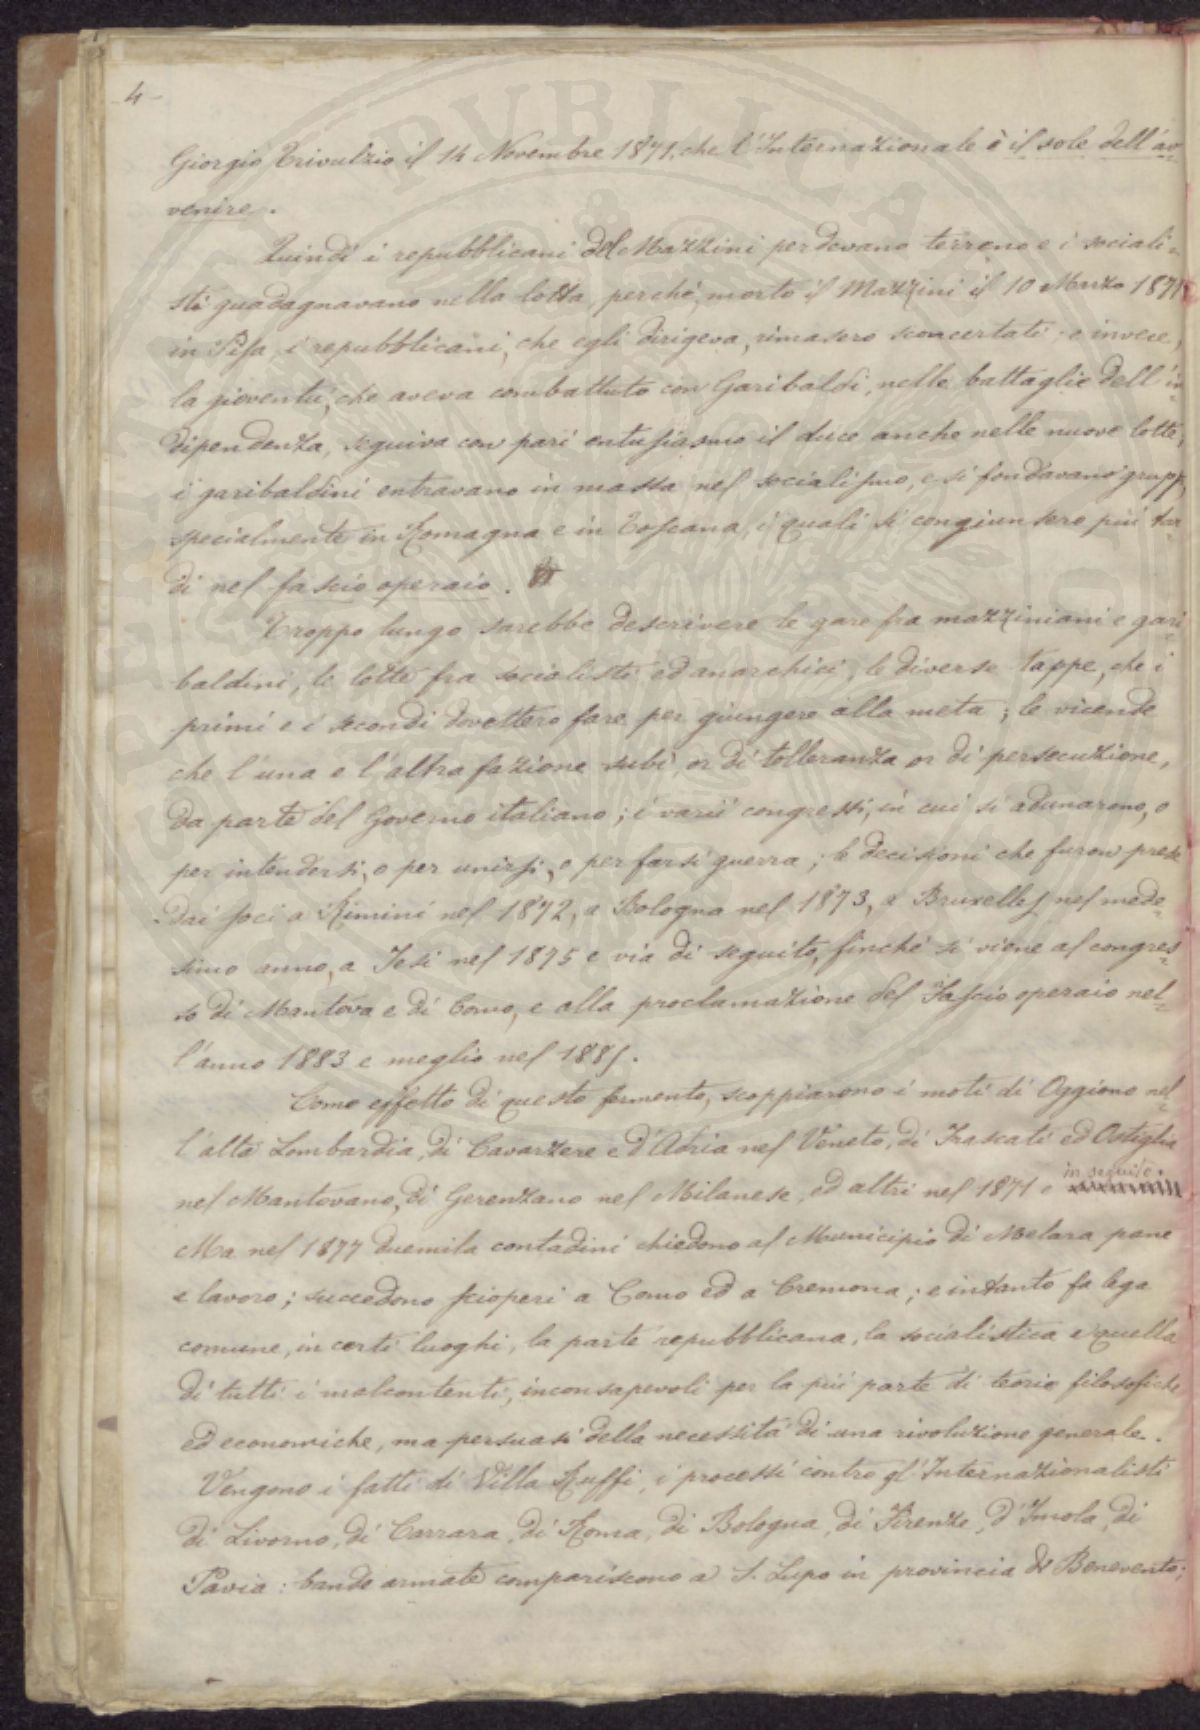 4
Giorgio Trivulzio il 14 Novembre 1871, che l'Internazionale è il sole dell'av-
venire.
Quindi i repubblicani del Mazzini perdevano terreno e i sociali-
sti guadagnavano nella lotta, perchè, morto il Mazzini il 10 Marzo 1871
in Pisa, i repubblicani, che egli dirigeva, rimasero sconcertati; e invece,
la gioventù, che aveva combattuto con Garibaldi, nelle battaglie dell'in-
dipendenza, seguiva con pari entusiasmo il duce anche nelle nuove lotte,
i garibaldini entravano in massa nel socialismo, e si fondavano gruppi,
specialmente in Romagna e in Toscana, i quali si congiunsero più tar-
di nel fascio operaio.
Troppo lungo sarebbe descrivere le gare fra mazziniani e gari-
baldini, le lotte fra socialisti ed anarchici, le diverse tappe, che i
primi e i secondi dovettero fare per giungere alla meta; le vicende
che l'una e l'altra fazione subì, or di tolleranza or di persecuzione,
da parte del Governo italiano; i varii congressi, in cui si adunarono, o
per intendersi, o per unirsi, o per farsi guerra; le decisioni che furon prese
dai soci a Rimini nel 1872, a Bologna nel 1873, a Bruxelles nel mede-
simo anno, a Jesi nel 1875 e via di seguito, finchè si viene al congres-
so di Mantova e di Como, e alla proclamazione del Fascio operaio nel-
l'anno 1883 e meglio nel 1885.
Come effetto di questo fermento, scoppiarono i moti di Oggiono nel-
l'alta Lombardia, di Cavarzere e d'Adria nel Veneto, di Frascati ed Ostiglia
nel Mantovano, di Gerenzano nel Milanese, ed altri nel 1871 e in seguito.
Ma nel 1877 duemila contadini chiedono al Municipio di Melara pane
e lavoro; succedono scioperi a Como ed a Cremona; e intanto fa lega
comune, in certi luoghi, la parte repubblicana, la socialistica e quella
di tutti i malcontenti, inconsapevoli per la più parte di teorie filosofiche
ed economiche, ma persuasi della necessità di una rivoluzione generale.
Vengono i fatti di Villa Ruffi, i processi contro gl'Internazionalisti
di Livorno, di Carrara, di Roma, di Bologna, di Firenze, d'Imola, di
Pavia: bande armate compariscono a S. Lupo in provincia di Benevento;